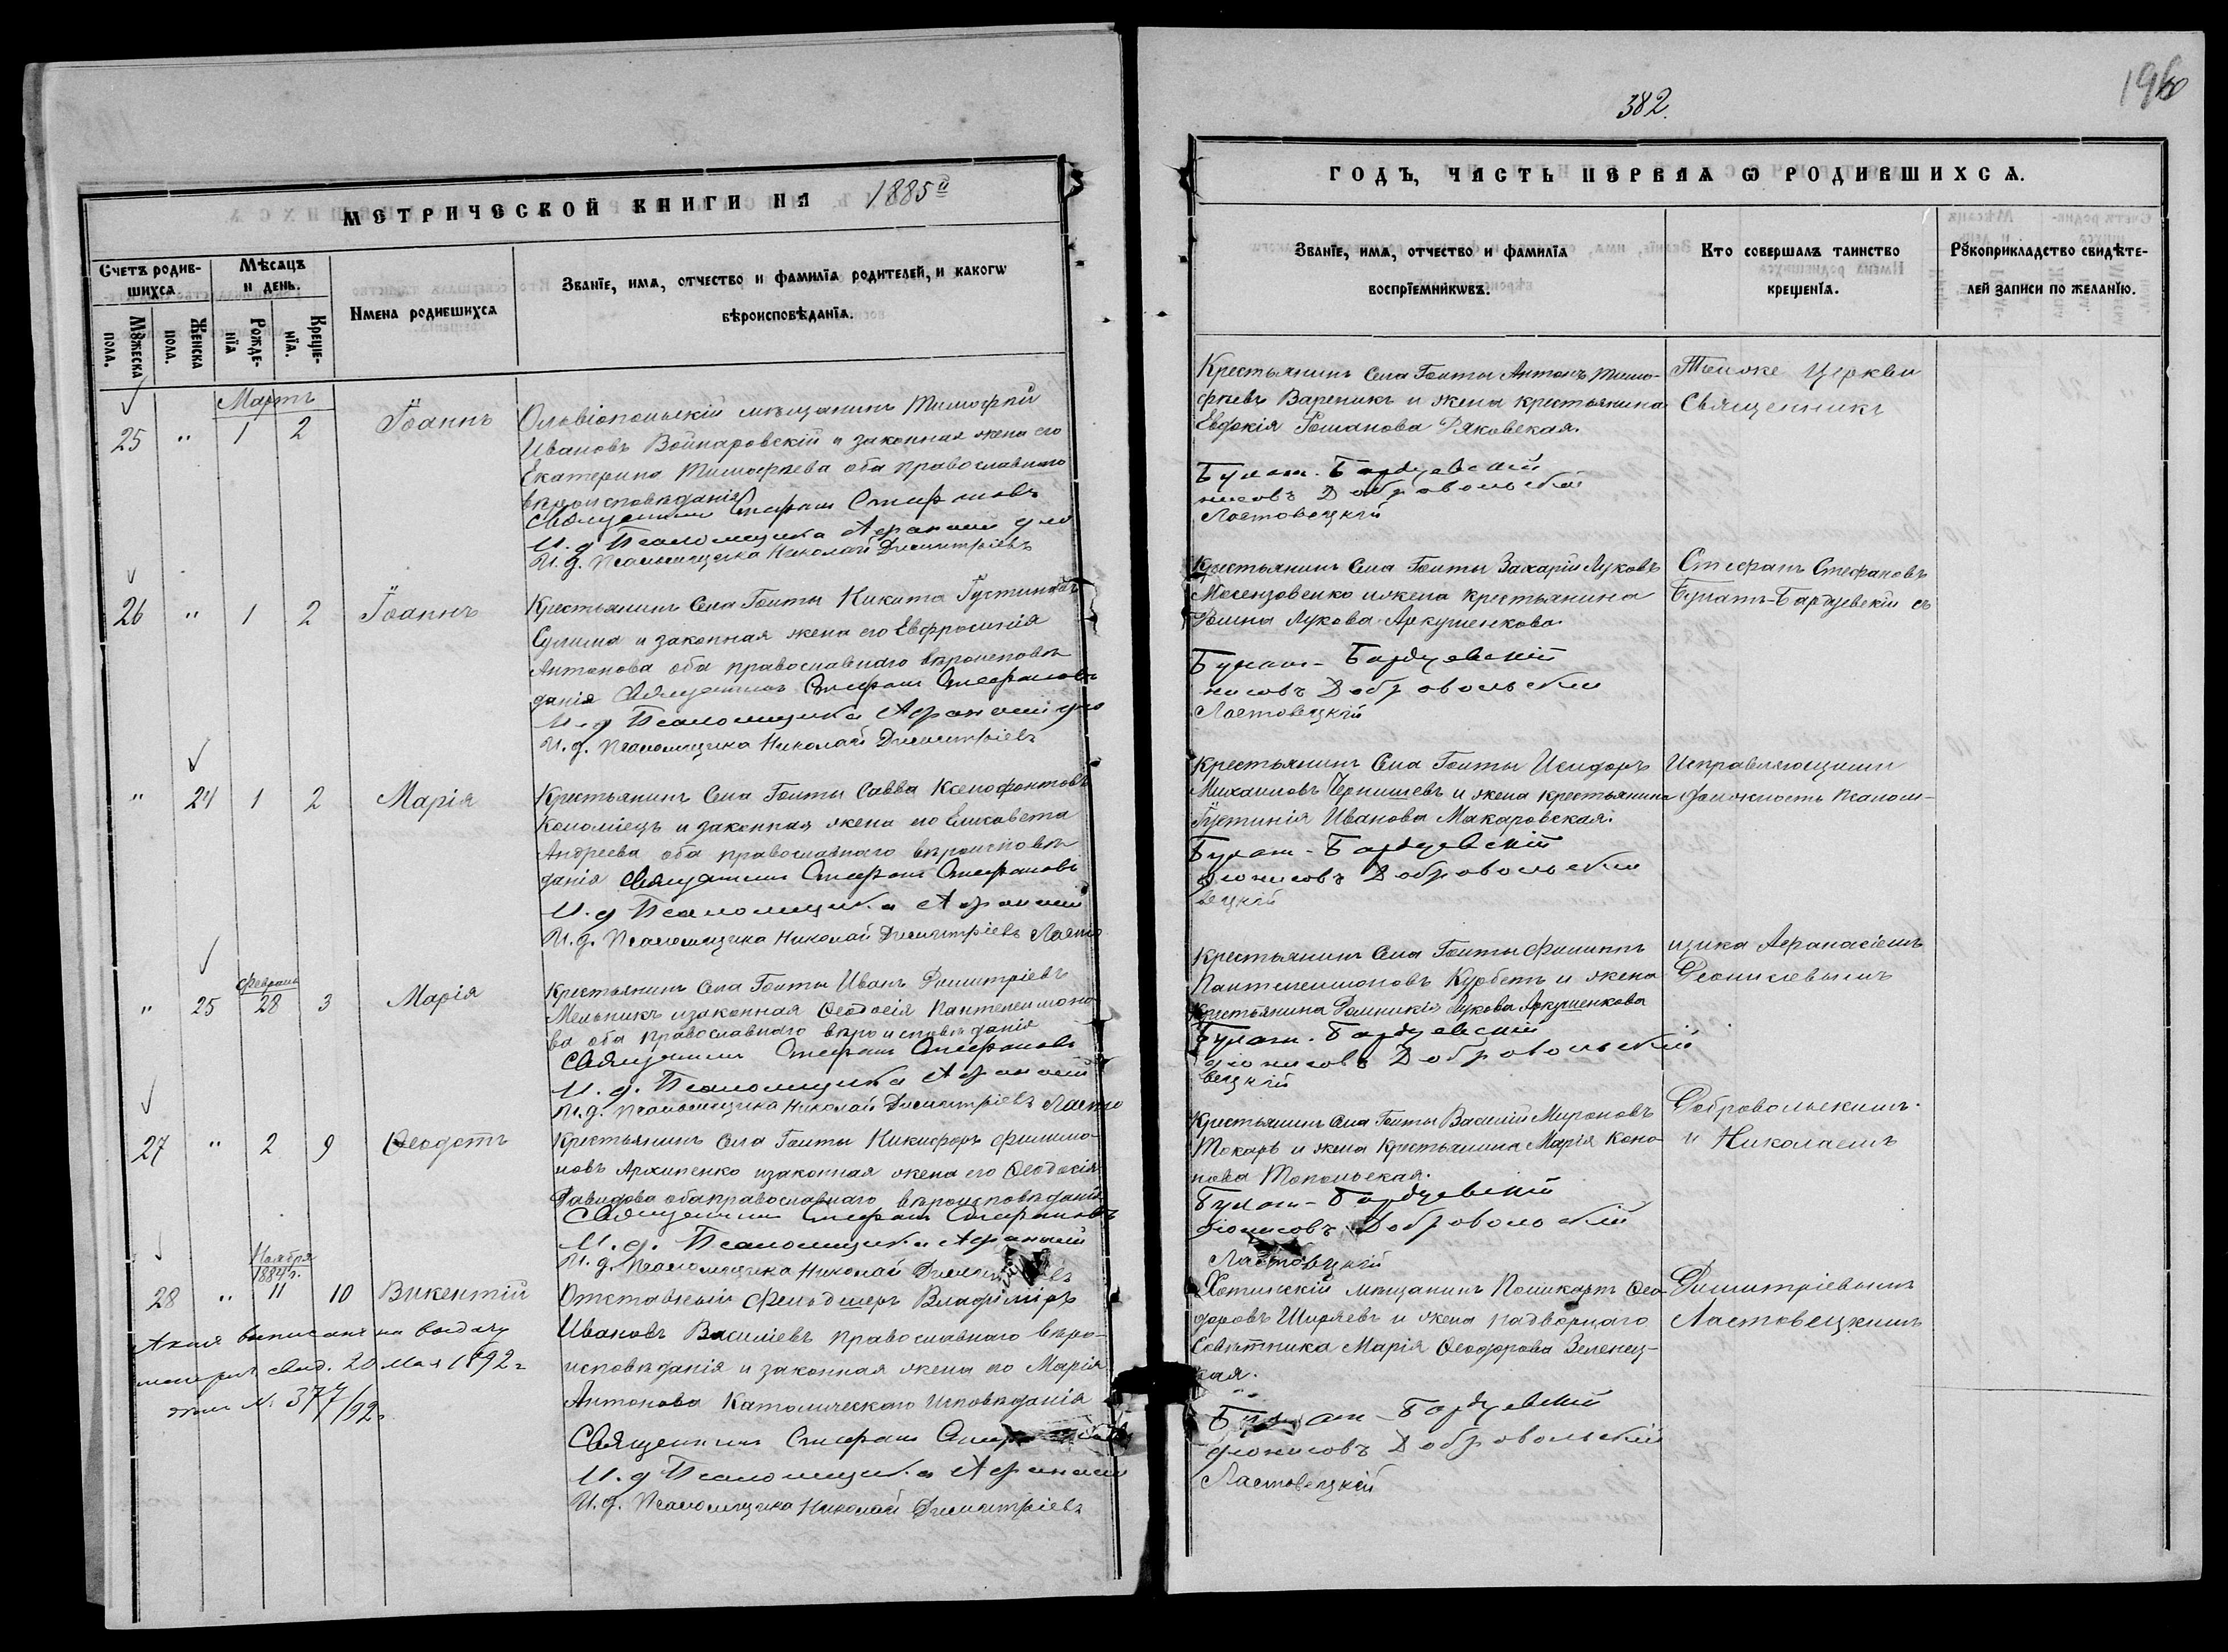 382.
196
МЕТРИЧЕСКОЙ КНИГИ НА 1885й
ГОДЪ, ЧАСТЬ ПЕРВАЯ Ѡ РОДИВШИХСѦ.
Счетъ родив-
шихсѧ
Мѣсѧцъ
и день.
Имена родившихсѧ
Званїе, имѧ, отчество и фамилїѧ родителей, и какогѡ
вѣроисповѣданїѧ.
Мꙋжеска
пола.
Женска
пола.
Рожде-
нїѧ
Креще-
нїѧ.
Званїе, имѧ, отчество и фамилїѧ
воспрїемникѡвъ.
Кто совершалъ таинство
крещенїѧ.
Рꙋкоприкладство свидѣте-
лей записи по желанїю.
Мартъ
25 " 1 2 Іоаннъ
Ольвіопольскій мѣщанинъ Тимофѣй
Ивановъ Войнаровскій и законная жена его
Екатерина Тимофѣева оба православнаго
вѣроисповѣданія
Священникъ Стефанъ Стефановъ
И. д. Псаломщика Афанасій діо
И. д. Псаломщика Николай Димитріевъ
Крестьянинъ Села Голты Антонъ Тимо-
фѣевъ Вареникъ и жена крестьянина
Евдокія Романова Дяковская.
Булат-Бардуевскій
нисовъ Добровольскій
Ластовецкій
Тойже церкви
Священникъ
26 " 1 2 Іоаннъ
Крестьянинъ Села Голты Никита Іустиновъ
Сулима и законная жена его Евфросинія
Антонова оба православнаго вѣроисповѣ
данія Священникъ Стефанъ Стефановъ
И. д. Псаломщика Афанасій діо
И. д. Псаломщика Николай Димитріевъ
Крестьянинъ Села Голты Захарій Луковъ
и жена крестьянина
Лукова Аркушенкова
Булат-Бардуевскій
нисовъ Добровольскій
Ластовецкій
Стефанъ Стефановъ
Булатъ-Бардуевскій съ
" 24 1 2 Марія
Крестьянинъ Села Голты Савва Ксенофонтовъ
Коломіецъ и законная жена его Елисавета
Андреева оба православнаго вѣроисповѣ
данія Священникъ Стефанъ Стефановъ
И. д. Псаломщика Афанасій
И. д. Псаломщика Николай Димитріевъ Ласто
Крестьянинъ Села Голты Исидоръ
Михаиловъ Чернишевъ и жена крестьянина
Іустинія Иванова Макаровская.
Булат-Бардуевскій
діонисовъ Добровольскій
вецкій
Исправляющими
должность Псалом-
Февраль
" 25 28 3 Марія
Крестьянинъ Села Голты Иванъ Димитріевъ
Мельникъ и законная Ѳеодосія Пантелеимоно
ва оба православнаго вѣроисповѣданія
Священникъ Стефанъ Стефановъ
И. д. Псаломщика Афанасій
И. д. Псаломщика Николай Димитріевъ Ласто
Крестьянинъ Села Голты Филиппъ
Пантелеимоновъ Курбетъ и жена
Крестьянина Домникія Лукова Аркушенкова
Булат-Бардуевскій
діонисовъ Добровольскій
вецкій
щика Афанасіемъ
Діонисіевымъ
27 " 2 9 Ѳеодотъ
Крестьянинъ Села Голты Никифоръ Филимо-
новъ Архипенко и законная жена его Ѳеодосія
Давидова оба православнаго вѣроисповѣданія
Священникъ Стефанъ Стефановъ
И. д. Псаломщика Афанасій
И. д. Псаломщика Николай Димитріевъ
Крестьянинъ Села Голты Василій Мироновъ
Токарь и жена Крестьянина Марія Коно-
нова Топольская.
Булат-Бардуевскій
діонисовъ Добровольскій
Ластовецкій
Добровольскимъ
и Николаемъ
Ноября
1884 г.
28 " 11 10 Викентій
Отставный фельдшеръ Владиміръ
Ивановъ Василіевъ православнаго вѣро-
исповѣданія и законная жена его Марія
Антонова Католическаго Исповѣданія
Священникъ Стефанъ Стефановъ
И. д. Псаломщика Афанасій
И. д. Псаломщика Николай Димитріевъ
Хотинскій мѣщанинъ Поликарпъ Ѳео-
доровъ Ширяевъ и жена надворнаго
Совѣтника Марія Ѳеодорова Зеленец-
кая.
Булат-Бардуевскій
діонисовъ Добровольскій
Ластовецкій
Димитріевымъ
Ластовецкимъ
выписанъ на выдачу
метрич. свид. 20 Мая 1892 г.
№ 377/92 г.